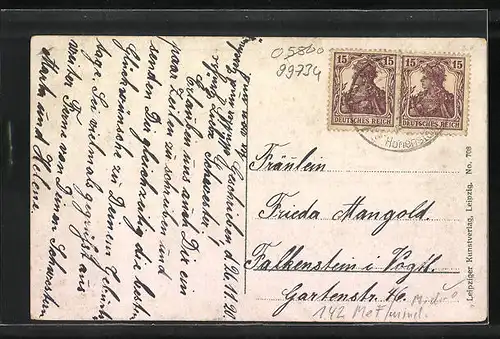 05800
99734
15 15 15 15
DEUTSCHES REICH DEUTSCHES REICH
Fräulein
Frieda Mangold.
Falkenstein i. Vogtl.
Gartenstr.
Leipziger Kunstverlag, Leipzig. No. 708
Geschrieben d. 26. 11. 20.
Liebe Schwester!
Erlauben uns auch Dir ein
paar Zeilen zu schreiben und
senden Dir gleichzeitig die besten
Glückwünsche zu Deinem
tage. Sei vielmals gegrüßt aus
weiter Ferne von Deinen Schwestern
Marta und Helene